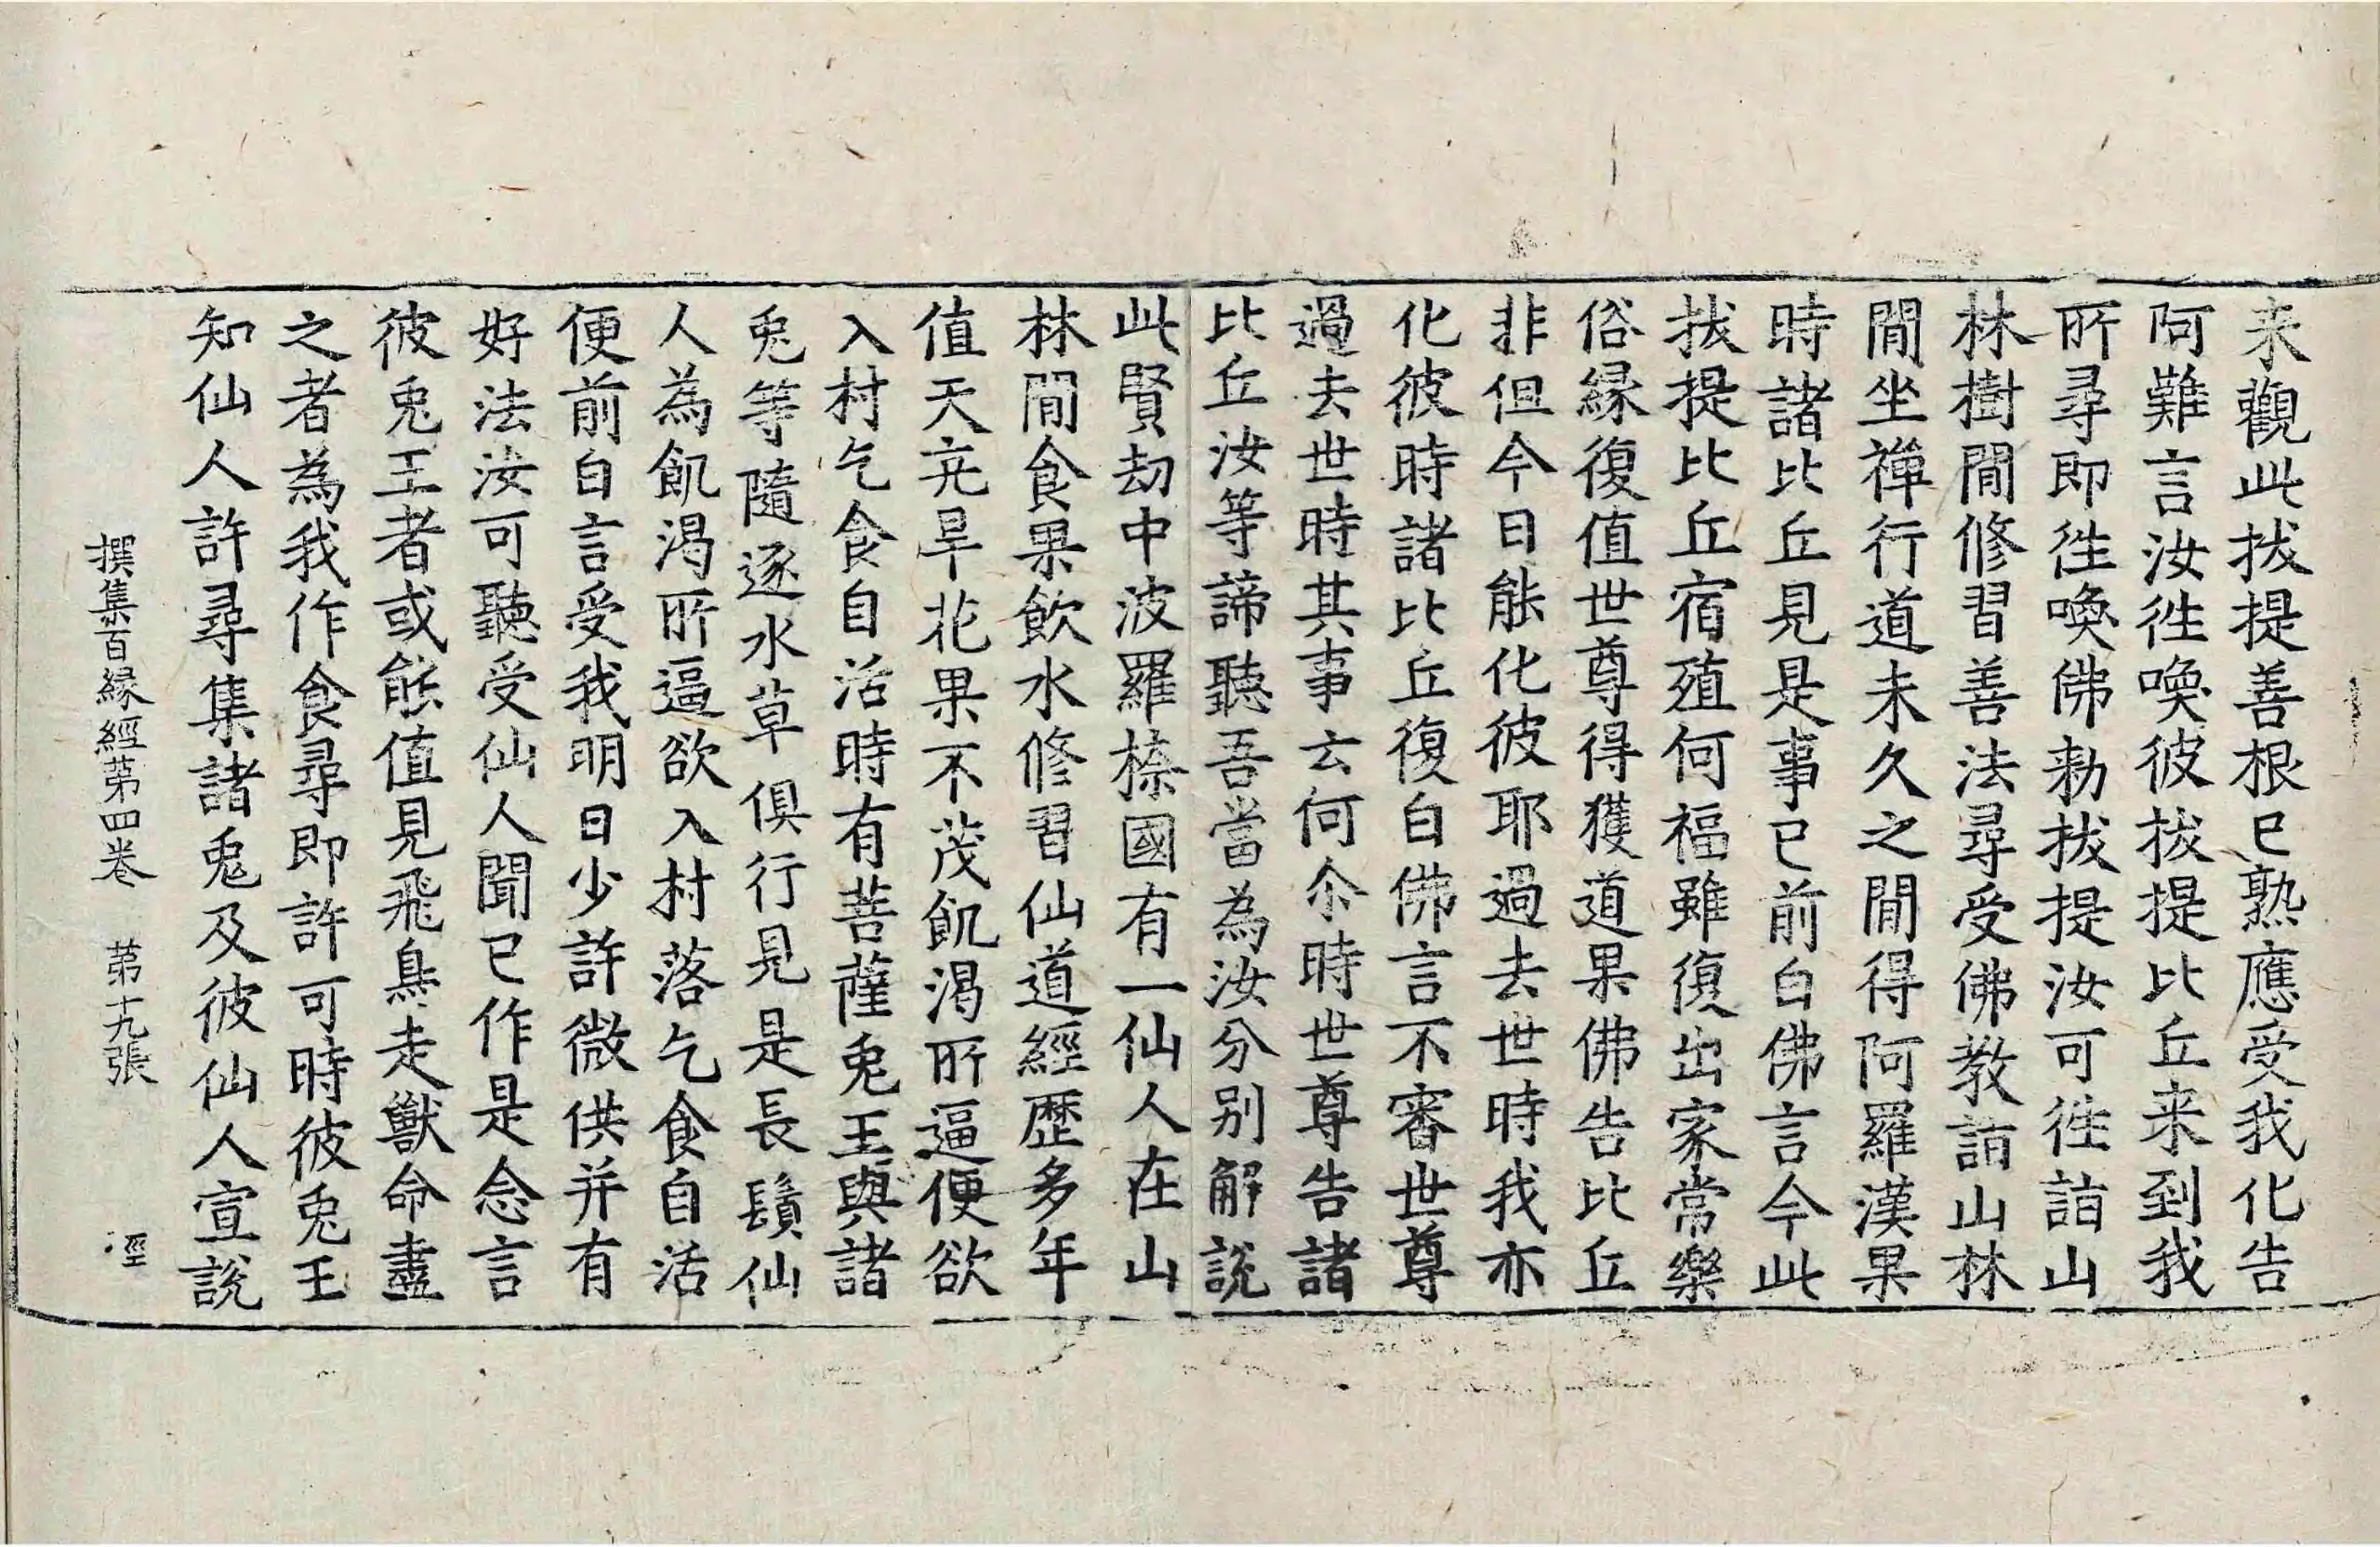 来觀此拔提善根已熟應受我化告
阿難言汝徃喚彼拔提比丘来到我
所尋即徃喚佛勑拔提汝可徃詣山
林樹閒修習善法尋受佛教詣山林
閒坐禪行道未久之閒得阿羅漢果
時諸比丘見是事已前白佛言今此
拔提比丘宿殖何福雖復出家常樂
俗緣復值世尊得獲道果佛告比丘
非但今日能化彼耶過去世時我亦
化彼時諸比丘復白佛言不審世尊
過去世時其事云何尒時世尊告諸
比丘汝等諦聽吾當為汝分別解說
此賢劫中波羅㮈國有一仙人在山
林閒食果飲水修習仙道經歷多年
值天亢旱花果不茂飢渴所逼便欲
入村乞食自活時有菩薩兎王與諸
兎等隨逐水草俱行見是長鬚仙
人為飢渴所逼欲入村落乞食自活
便前白言受我明日少許微供并有
好法汝可聽受仙人聞已作是念言
彼兎王者或能值見飛鳥走獸命盡
之者為我作食尋即許可時彼兎王
知仙人許尋集諸兎及彼仙人宣說
撰集百緣經第四卷　第十九張　徑